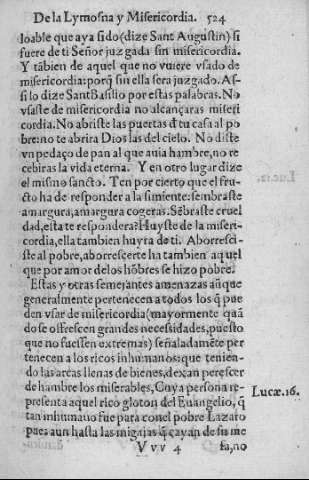 De la Lymosna y Misericordia. 524
loable que aya sido (dize Sant Augustin) si
fuere de ti Señor juzgada sin misericordia.
Y tãbien de aquel que no vuiere vsado de
misericordia: porq̃ sin ella sera juzgado. As-
si lo dize Sant Basilio por estas palabras. No
vsaste de misericordia no alcançaras miseri
cordia. No abriste las puertas đ tu casa al po
bre: no te abrira Dios las del cielo. No diste
vn pedaço de pan al que auia hambre, no re
cebiras la vida eterna. Y en otro lugar dize
el mismo sancto. Ten por cierto que el fru-
cto ha de responder a la simiente: sembraste
amargura, amargura cogeras. Sẽbraste cruel
dad, esta te respondera? Huyste de la miseri-
cordia, ella tambien huyra de ti. Aborresci-
ste al pobre, aborrescerte ha tambien aquel
que por amor de los hõbres se hizo pobre.
Estas y otras semejantes amenazas aũque
generalmente pertenecen a todos los q̃ pue
den vsar de misericordia (mayormente quã
do se offrescen grandes necessidades, puesto
que no fuessen extremas) señaladamẽte per
tenecen a los ricos inhumanos: que tenien-
do las arcas llenas de bienes, dexan perescer
de hambre los miserables, Cuya persona re-
presenta aquel rico gloton del Euangelio, q̃
tan inhumano fue para con el pobre Lazaro
pues aun hasta las migajas q̃ çayan de su me
Lucæ. 16.
Vvv 4 sa, no